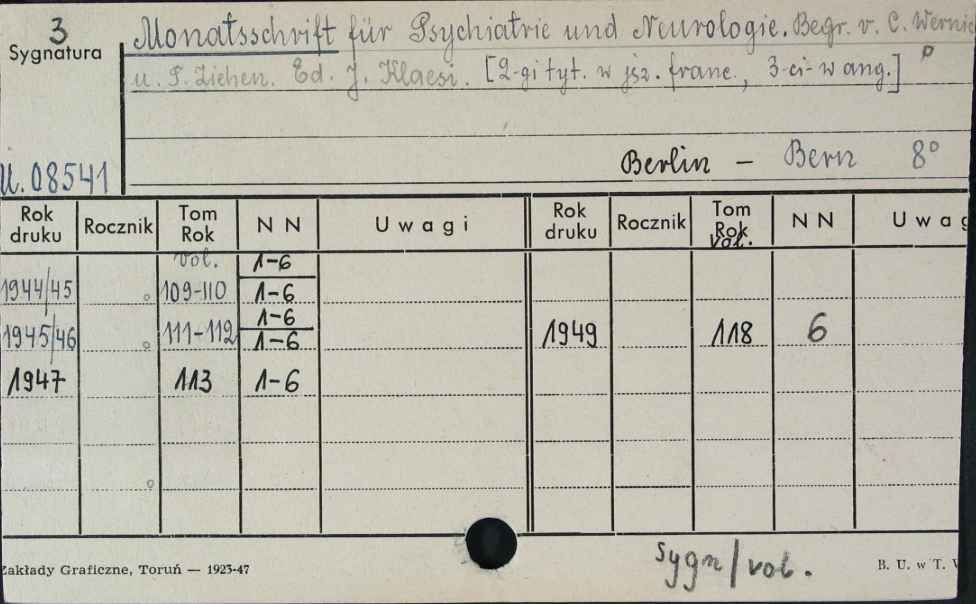 3
Sygnatura
U.08541
Monatsschrift für Psychiatrie und Neurologie. Begr. v. C. Wernic
u. T. Ziehen. Ed. J. Klaesi. [2-gi tyt. w jęz. franc., 3-ci-w ang.] p
Berlin - Bern 8°
Rok druku Rocznik Tom Rok N N Uwagi Rok druku Rocznik Tom Rok N N Uwag
vol. 1-6 vol.
1944/45 109-110 1-6
1945/46 111-112 1-6 1-6 1949 118 6
1947 113 1-6
Zakłady Graficzne, Toruń — 1923-47
sygn/vol.
B. U. w T.